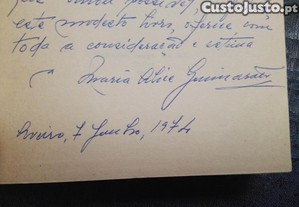 CustoJusto.pt
este modesto livro, oferece com
toda a consideração e estima
Maria Alice Guimarães
Aveiro, 7 Junho, 1974